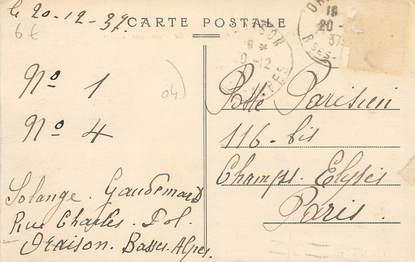 le 20-12-37
CARTE POSTALE
6€
04
No 1
No 4
Solange. Gaudemard
Rue Charles. Dol
Oraison. Basses. Alpes.
18
20 -
37
Poste Parisien
116 - bis
Champs. Elysés
Paris.